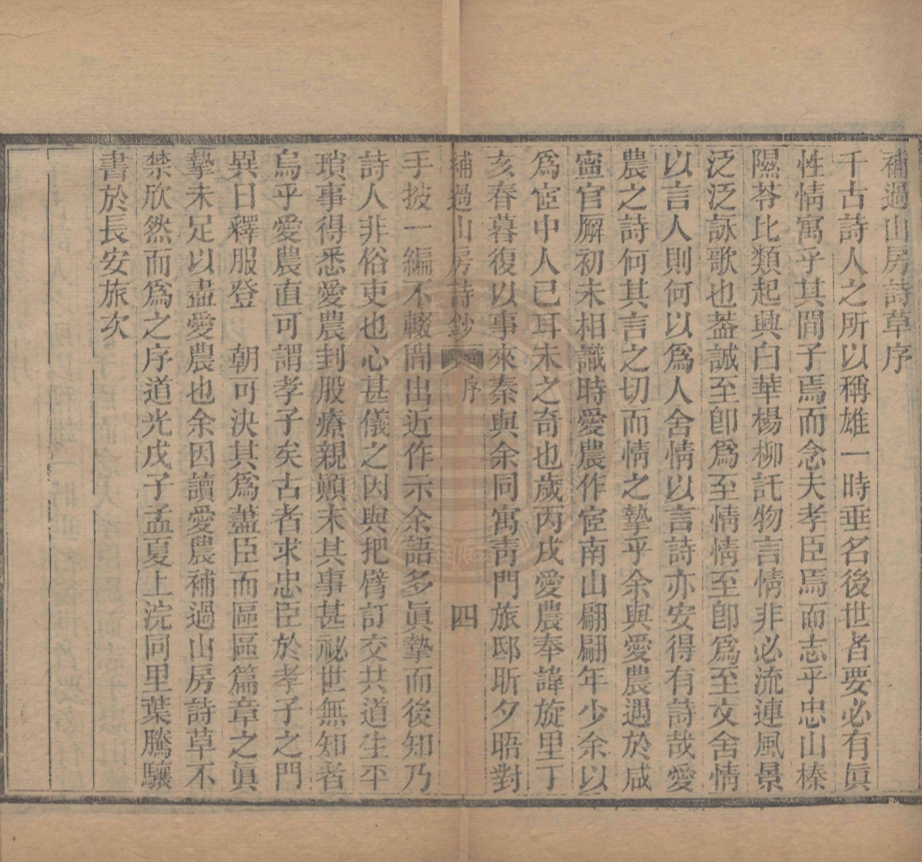 補過山房詩草序
千古詩人之所以稱雄一時垂名後世者要必有眞
性情寓乎其間子焉而念夫孝臣焉而志乎忠山榛
隰苓比類起興白華楊柳託物言情非必流連風景
泛泛詠歌也葢誠至卽爲至情情至卽爲至文舍情
以言人則何以爲人舍情以言詩亦安得有詩哉愛
農之詩何其言之切而情之摯乎余與愛農遇於咸
寧官廨初未相識時愛農作宦南山翩翩年少余以
爲宦中人已耳未之奇也歲丙戌愛農奉諱旋里丁
亥春暮復以事來秦與余同寓靑門旅邸昕夕晤對
補過山房詩鈔 序 四
手披一編不輟間出近作示余語多眞摯而後知乃
詩人非俗吏也心甚儀之因與把臂訂交共道生平
瑣事得悉愛農刲股療親顚末其事甚祕世無知者
烏乎愛農直可謂孝子矣古者求忠臣於孝子之門
異日釋服登　朝可決其爲藎臣而區區篇章之眞
摯未足以盡愛農也余因讀愛農補過山房詩草不
禁欣然而爲之序道光戊子孟夏上浣同里葉騰驤
書於長安旅次